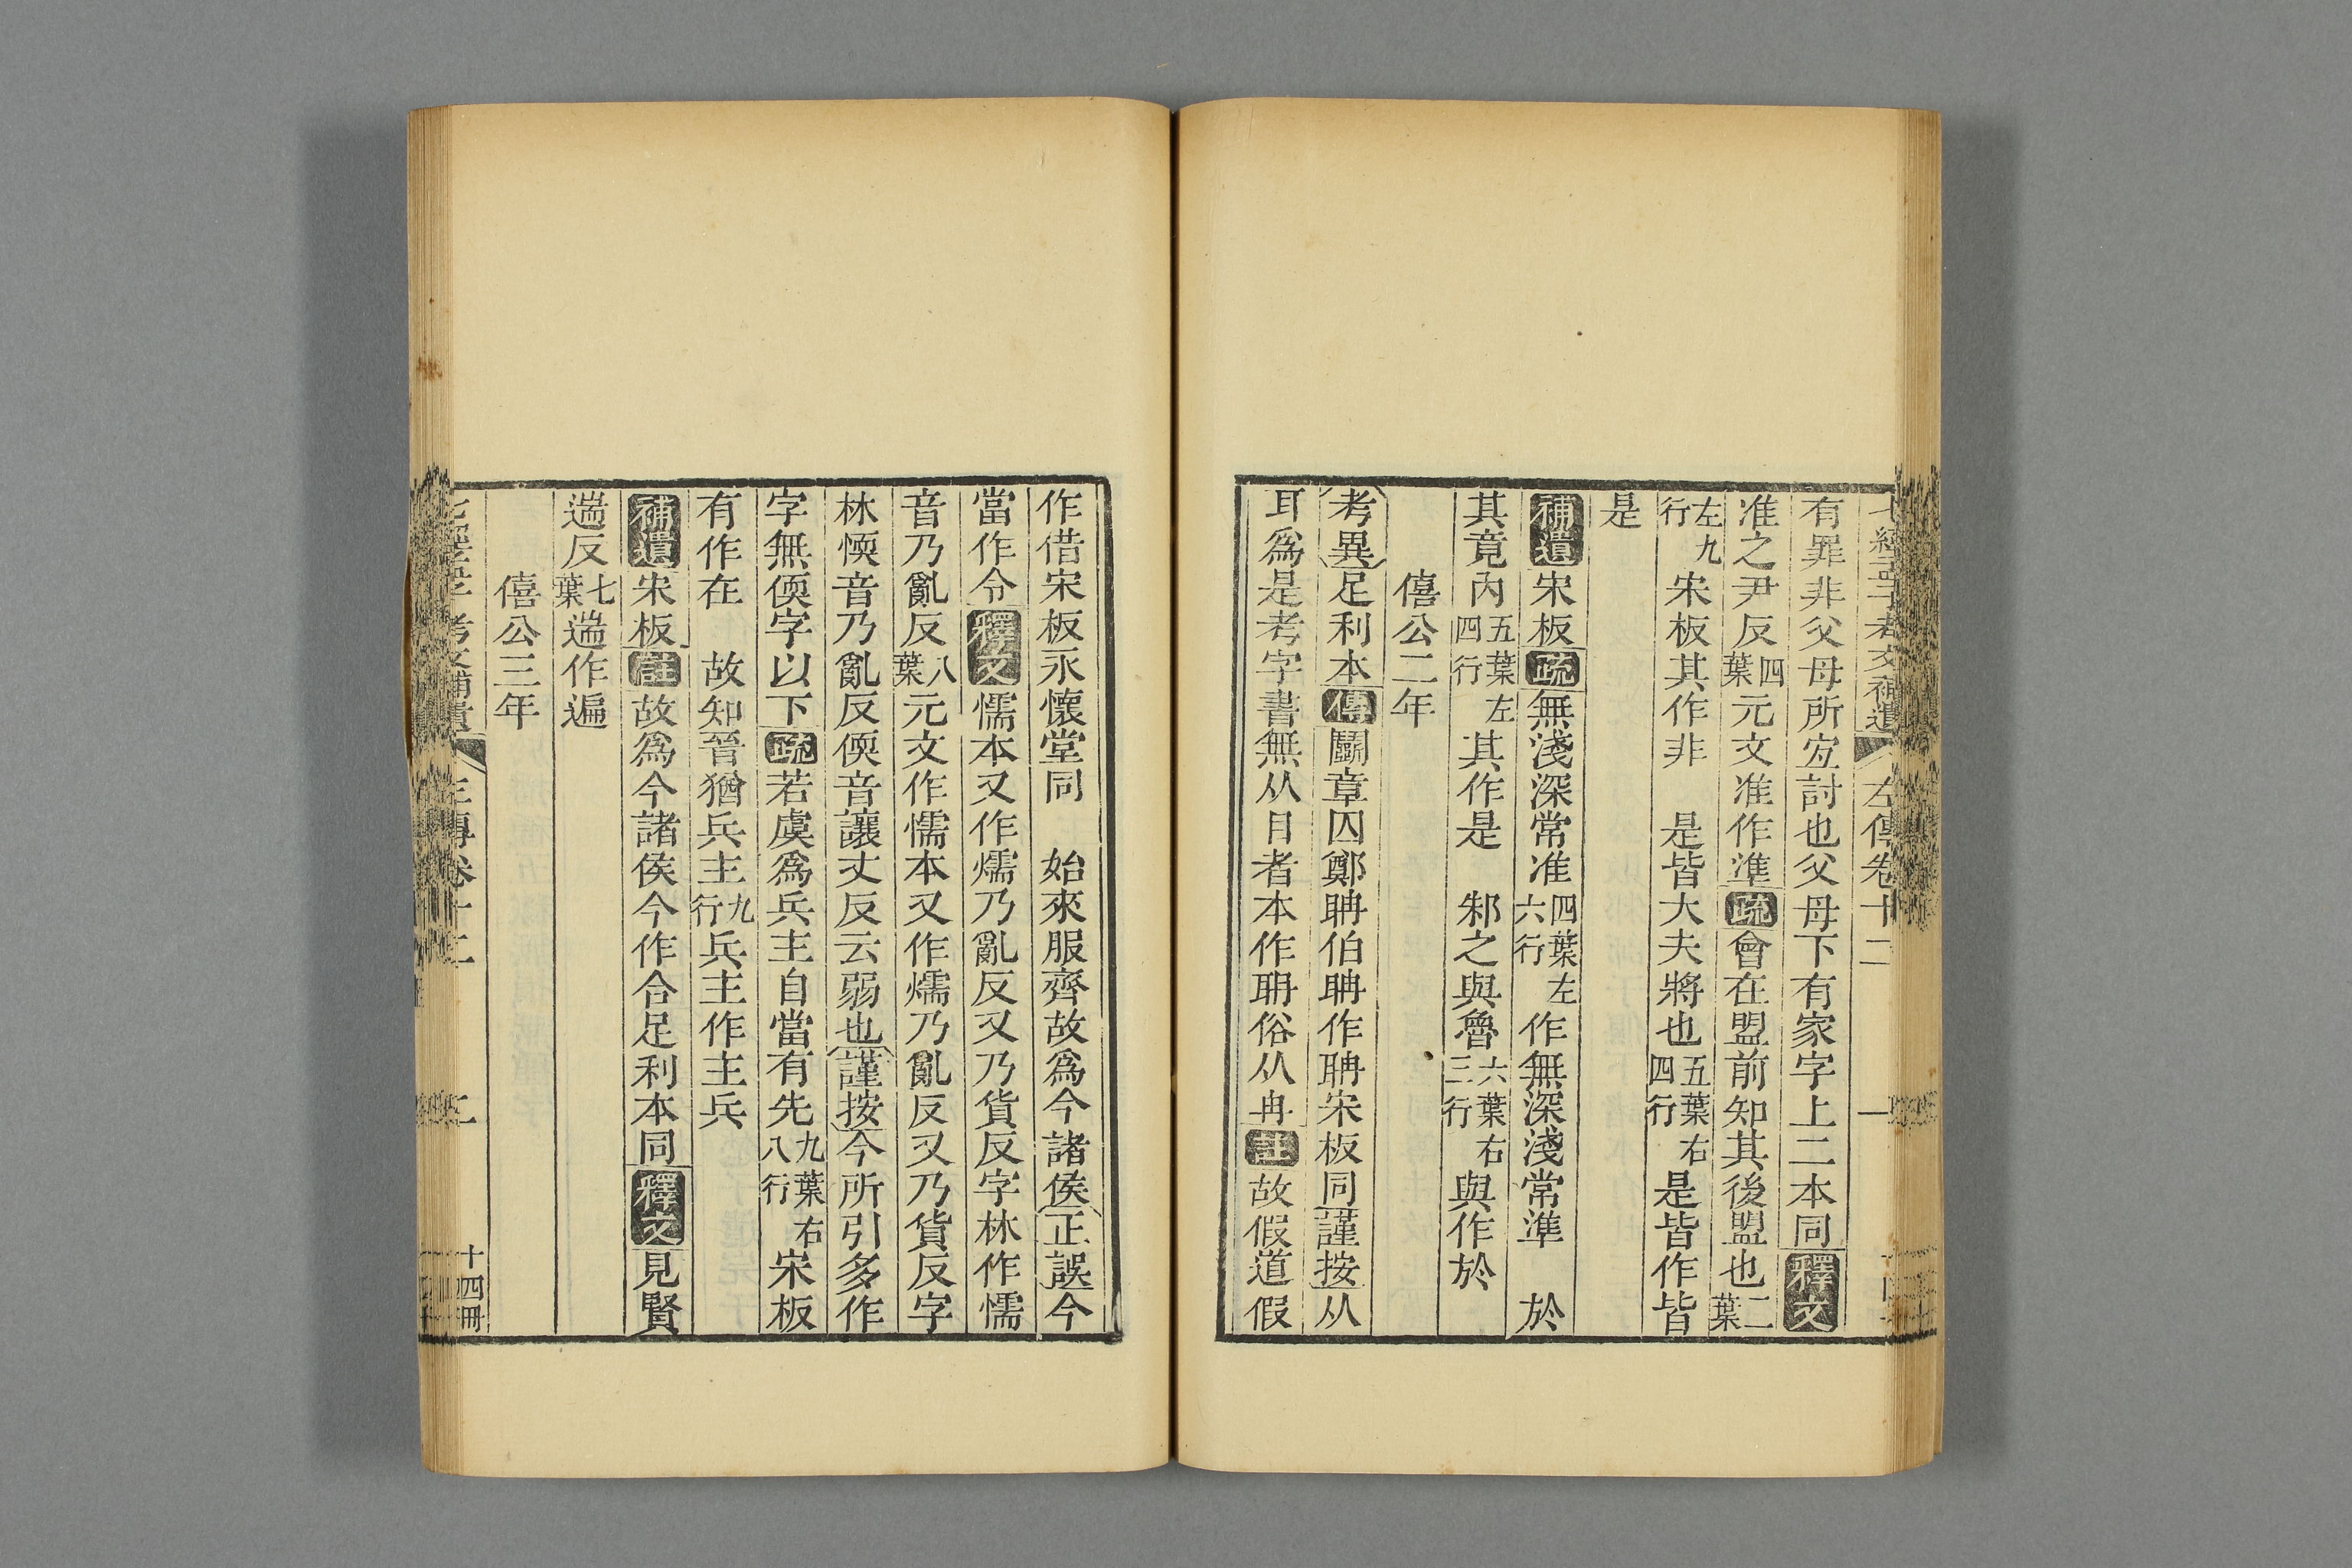 七經孟子考文補遺 左傳卷十二 一
有罪非父母所宐討也父母下有家字上二本同釋文
准之尹反四葉元文准作準疏會在盟前知其後盟也二葉
左九行宋板其作非 是皆大夫將也五葉右四行是皆作皆
是
補遺宋板疏無淺深常准四葉左六行作無深淺常準 於
其竟內五葉左四行其作是 邾之與魯六葉右三行與作於
僖公二年
考異足利本傳鬭章囚鄭聃伯聃作聃宋板同謹按从
耳爲是考字書無从目者本作聃俗从冉註故假道假
作借宋板永懷堂同 始來服齊故爲今諸侯正誤今
當作令釋文懦本又作燸乃亂反又乃貨反字林作懦
音乃亂反八葉元文作懦本又作燸乃亂反又乃貨反字
林愞音乃亂反偄音讓丈反云弱也謹按今所引多作
字無偄字以下疏若虞爲兵主自當有先九葉右八行宋板
有作在 故知晉猶兵主九行兵主作主兵
補遺宋板註故爲今諸侯今作合足利本同釋文見賢
遄反七葉遄作遍
僖公三年
七經孟子考文補遺 左傳卷十二 二 十四冊